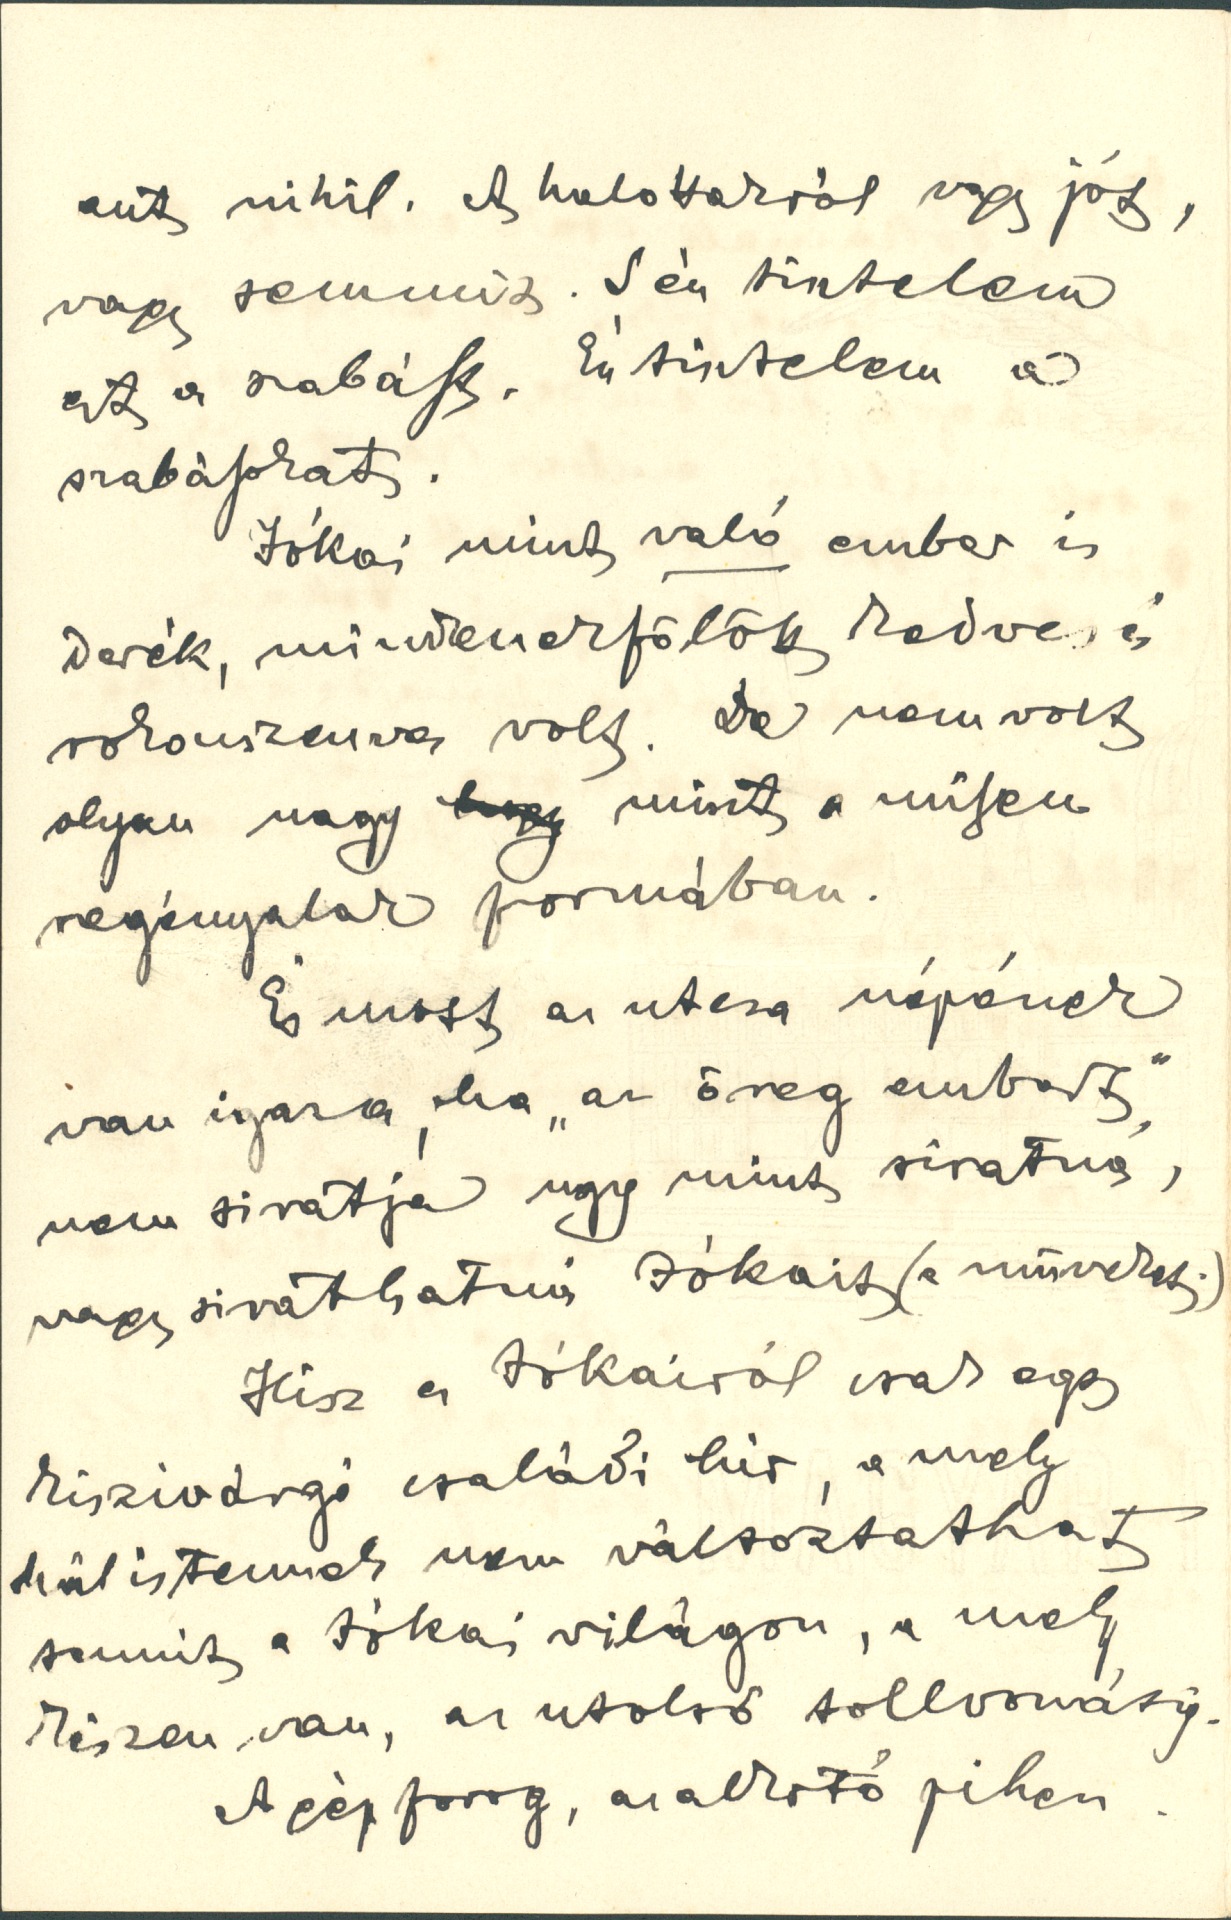 aut nihil. A halottakról vagy jót,
vagy semmit. S én tisztelem
ezt a szabályt. Én tisztelem a
szabályokat.
Jókai mint való ember is
derék, mindenekfölött kedves és
rokonszenves volt. De nem volt
olyan nagy mint a milyen
regényalak formában.
És most az utcza népének
van igaza, ha „az öreg embert"
nem siratja ugy mint siratná,
vagy sirathatná Jókait (a művekét.)
Hisz a Jókairól csak egy
kiszivárgó családi hir, a mely
hál'istennek nem változtathat
semmit a Jókai világon, a mely
készen van, az utolsó tollvonásig.
A gép forog, az alkotó pihen.